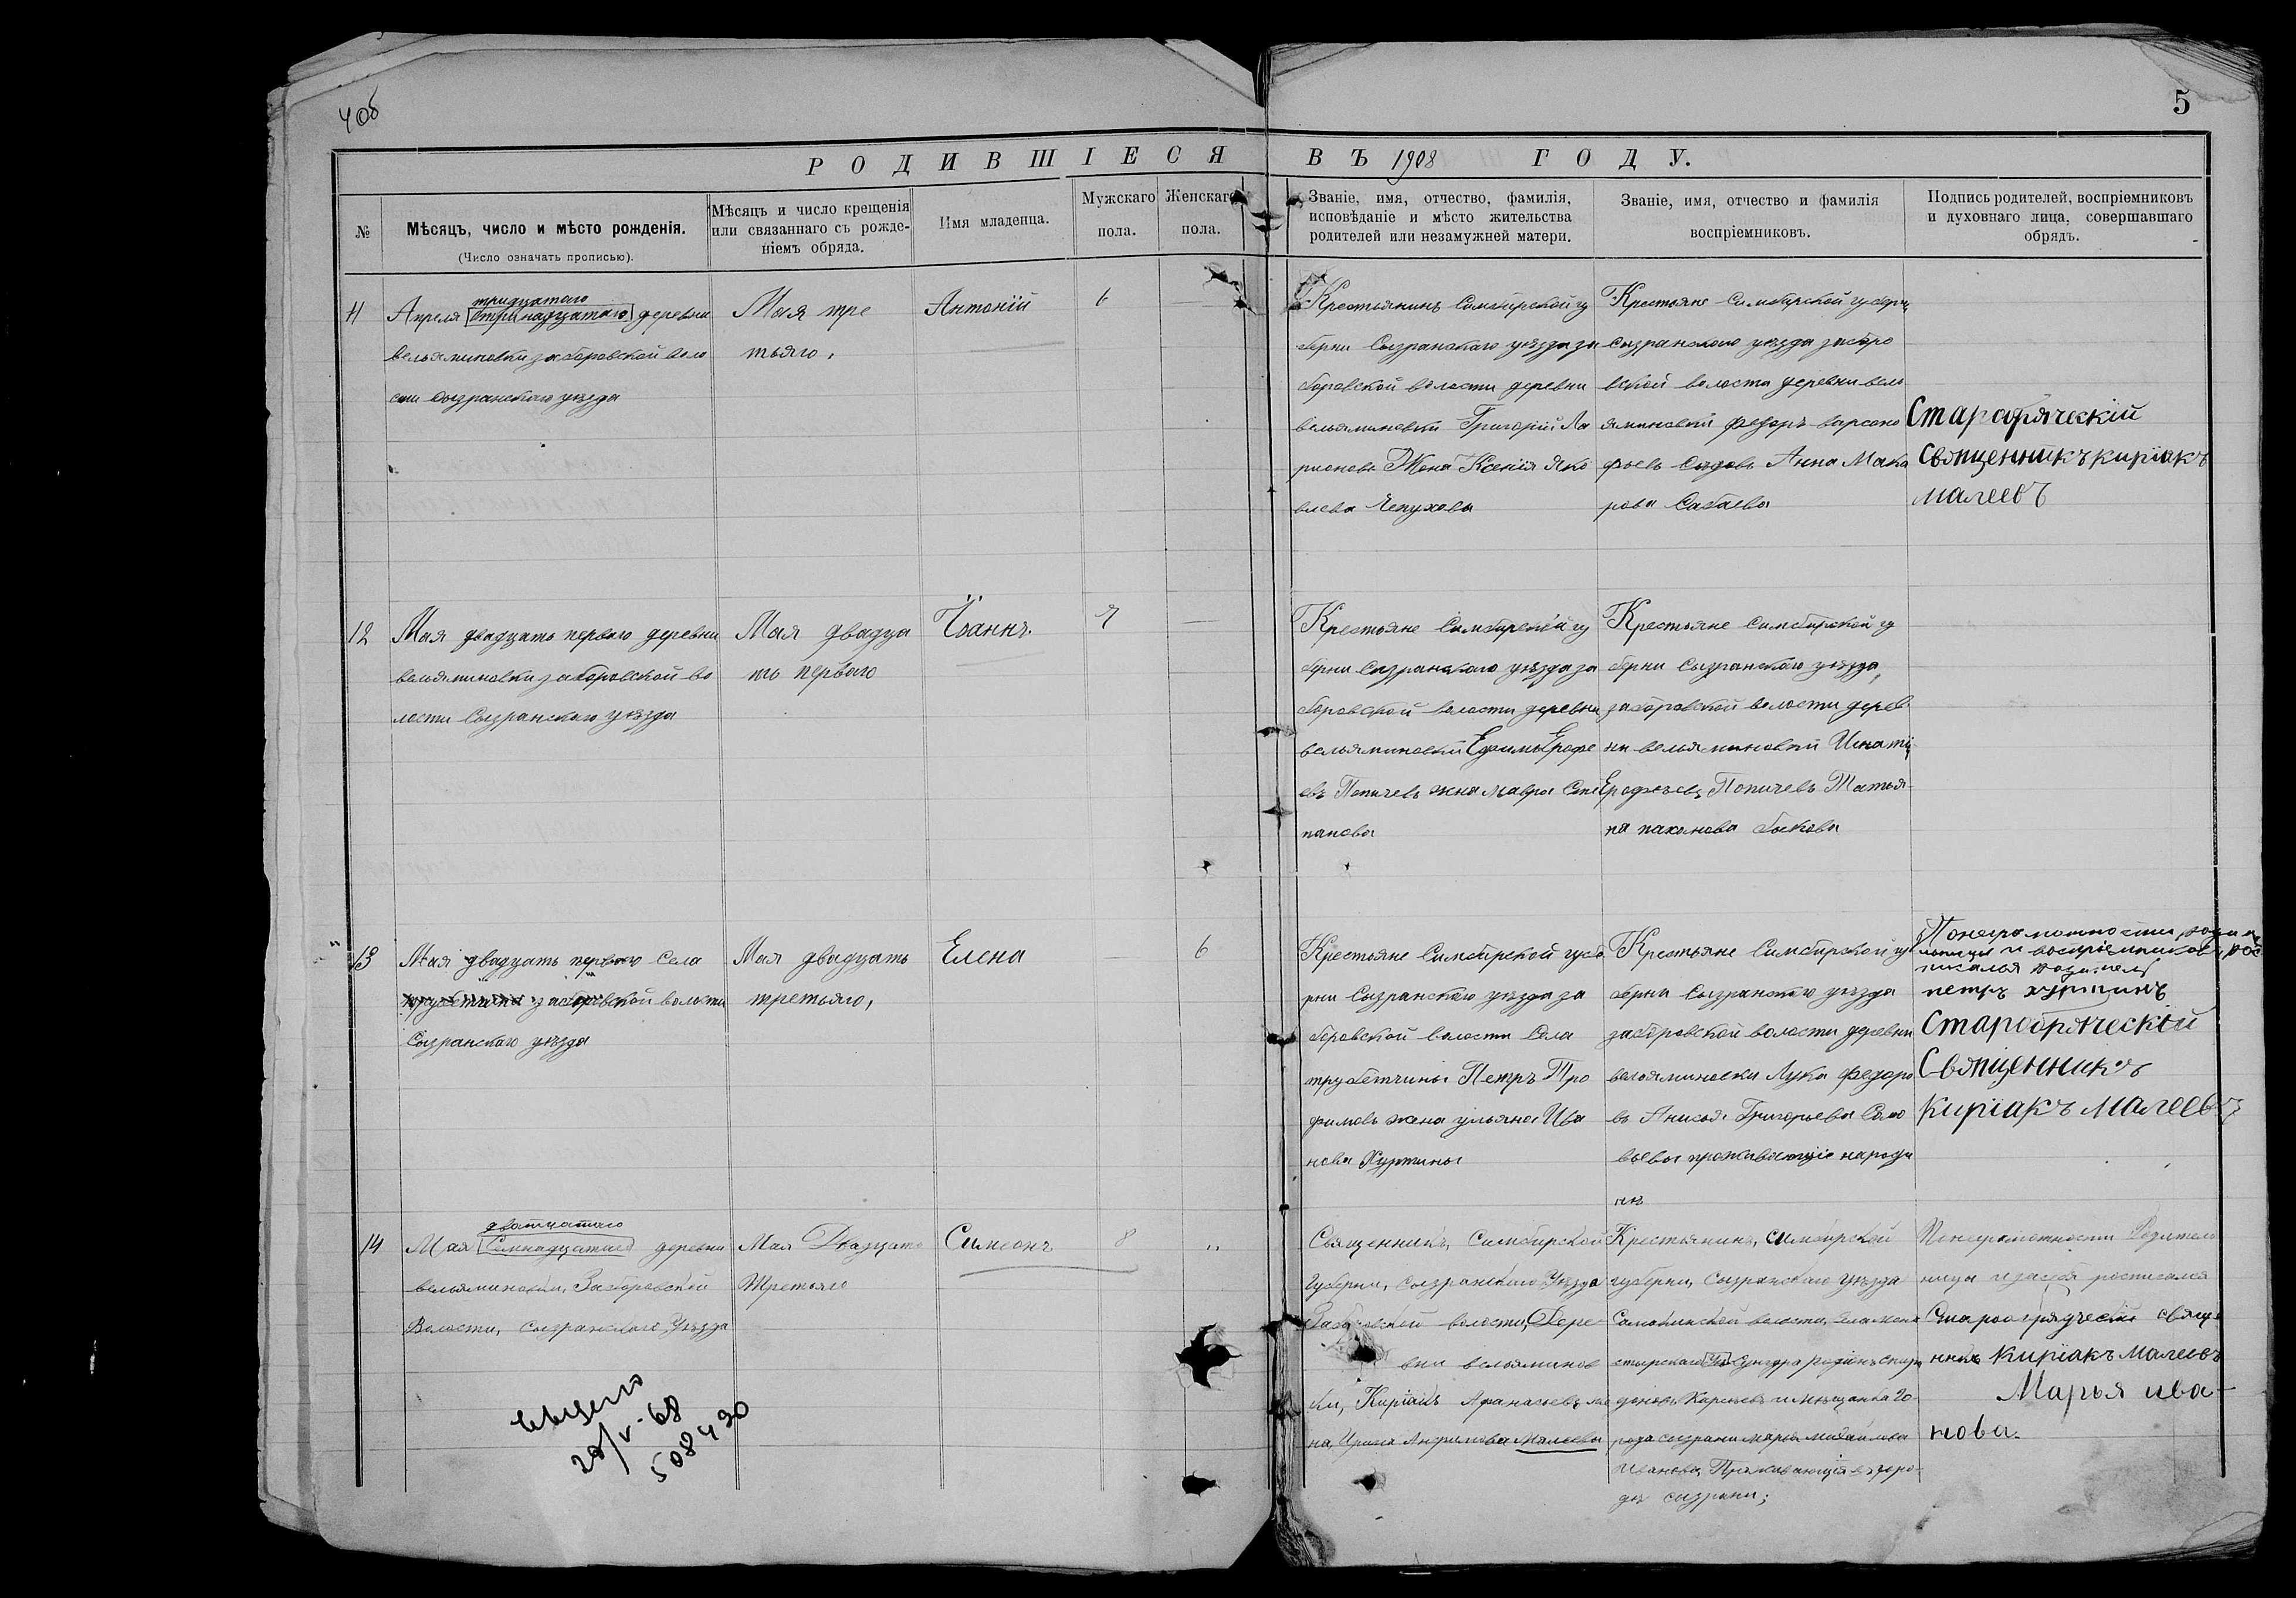 4об
5
РОДИВШІЕСЯ ВЪ 1908 ГОДУ.
№
Мѣсяцъ, число и мѣсто рожденія.
(Число означать прописью).
Мѣсяцъ и число крещенія
или связаннаго съ рожде-
ніемъ обряда.
Имя младенца.
Мужскаго
пола.
Женскаго
пола.
Званіе, имя, отчество, фамилія,
исповѣданіе и мѣсто жительства
родителей или незамужней матери.
Званіе, имя, отчество и фамилія
воспріемниковъ.
Подпись родителей, воспріемниковъ
и духовнаго лица, совершавшаго
обрядъ.
11
тридцатаго
Апреля тринадцатаго деревни
вельяминовки заборовской воло
сти Сызранскаго уезда
Мая тре
тьяго,
Антоній
6
Крестьянинъ Симбирской гу
берни Сызранскаго уезда за
боровской волости деревни
вельяминовки Григорій Ла
рионовъ Жена Ксенія Яко
влева Чепухова
Крестьяне Симбирской губерн
Сызранскаго уезда заборо
вской волости деревни вель
яминовки Федоръ варсоно
фьевъ Анна Мака
рова Сабаева
Старобряческій
Священникъ киріакъ
малеевъ
12
Мая двадцать перваго деревни
вельяминовки заборовской во
лости Сызранскаго уезда
Мая двадца
ть перваго
Іоаннъ.
7
Крестьяне Симбирской гу
берни Сызранскаго уезда за
боровской волости деревни
вельяминовки Ефимъ Ерофе
евъ Попичевъ жена Мавра Сте
панова
Крестьяне Симбирской гу
берни Сызранскаго уезда,
заборовской волости дерев
ни вельяминовки Игнатій
Ерофеевъ Попичевъ Татья-
на пахомова быкова
13
Мая двадцать перваго Села
трубетчина заборовской волости
Сызранскаго уезда
Мая двадцать
третьяго,
Елена
6
Крестьяне Симбирской губе
рни Сызранскаго уезда за
боровской волости Села
трубетчины Петръ Про
фимовъ жена ульяна Ива
нова Хуртины
Крестьяне Симбирской гу
берни Сызранскаго уезда
заборовской волости деревни
вельяминовки Лука Федоро
въ Анисья Григорьева Соло
вьевы проживающие народи
не
Понеграмотности родите
льницы и воспріемниковъ рос
писался родитель
петръ хуртинъ
Старобряческій
Священникъ
Киріакъ Малеевъ
14
дватцатаго
Мая Семнадцатаго деревни
вельяминовки, Заборовской
Волости, Сызранскаго Уезда
Мая Двадцать
Третьяго
Симеонъ
8
„
Священникъ, Симбирской
Губерни, Сызранскаго Уезда
Заборовской волости, Дере
вни вельяминов
ки, Киріакъ Афанасьевъ же
на, Ирина Малеевы
Крестьянинъ, Симбирской
губерни, Сызранскаго уезда
волости,
Родіонъ Спири
доновъ Карповъ и мещанка го
рода сызрани марья михайлова
Иванова, Проживающія въ горо-
де сызрани;
Понеграмотности Родитель
ницы изасебя росписался
Старообрядческій свяще
нникъ Киріакъ Малеевъ
Марья ива-
нова.
28/V-68
508490